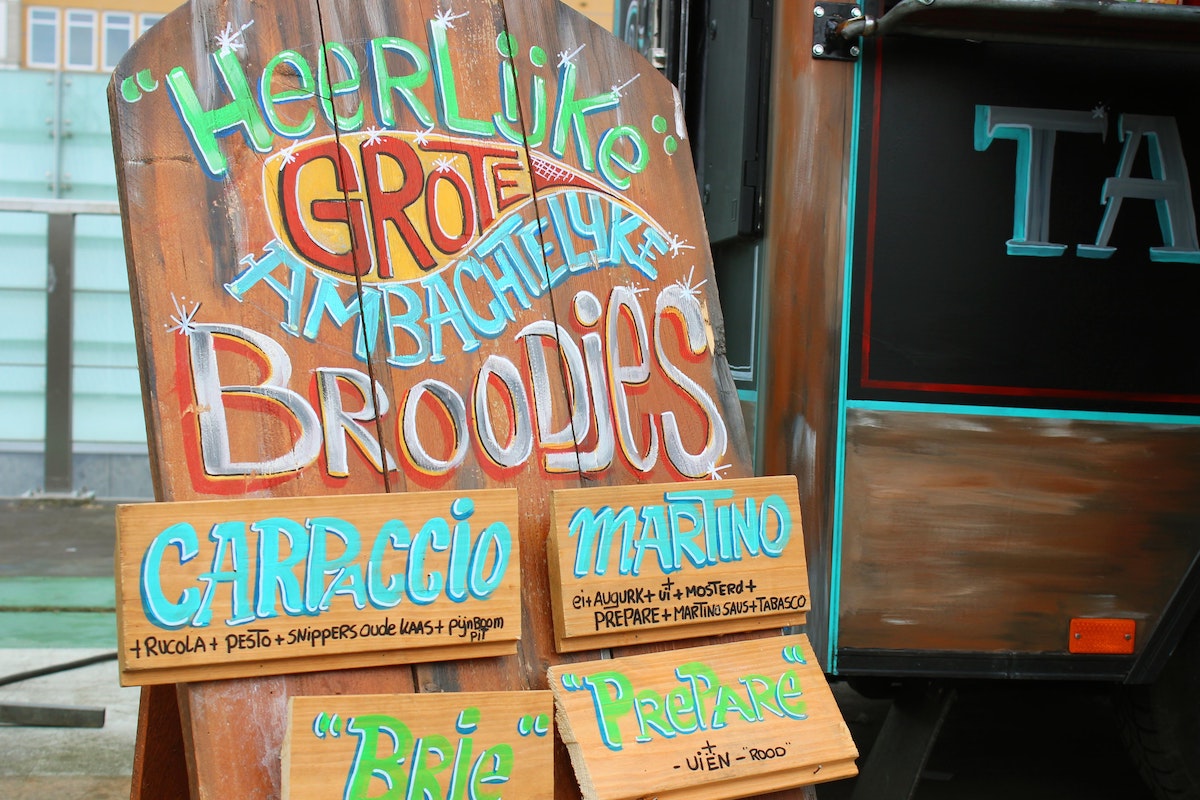 "HeerLijke"
GROTE
AMBACHTELYKE
BROODjes
CARPACCiO
+ RUCOLA + PESTO + SNIPPERS OUDE KAAS + pijnBoom
PIT
MARTINO
ei + AUGURK + Ui + MOSTERD +
PREPARE + MARTINO SAUS + TABASCO
"PRePARe"
+
- UiËN - "ROOD"
"BRie"
TA